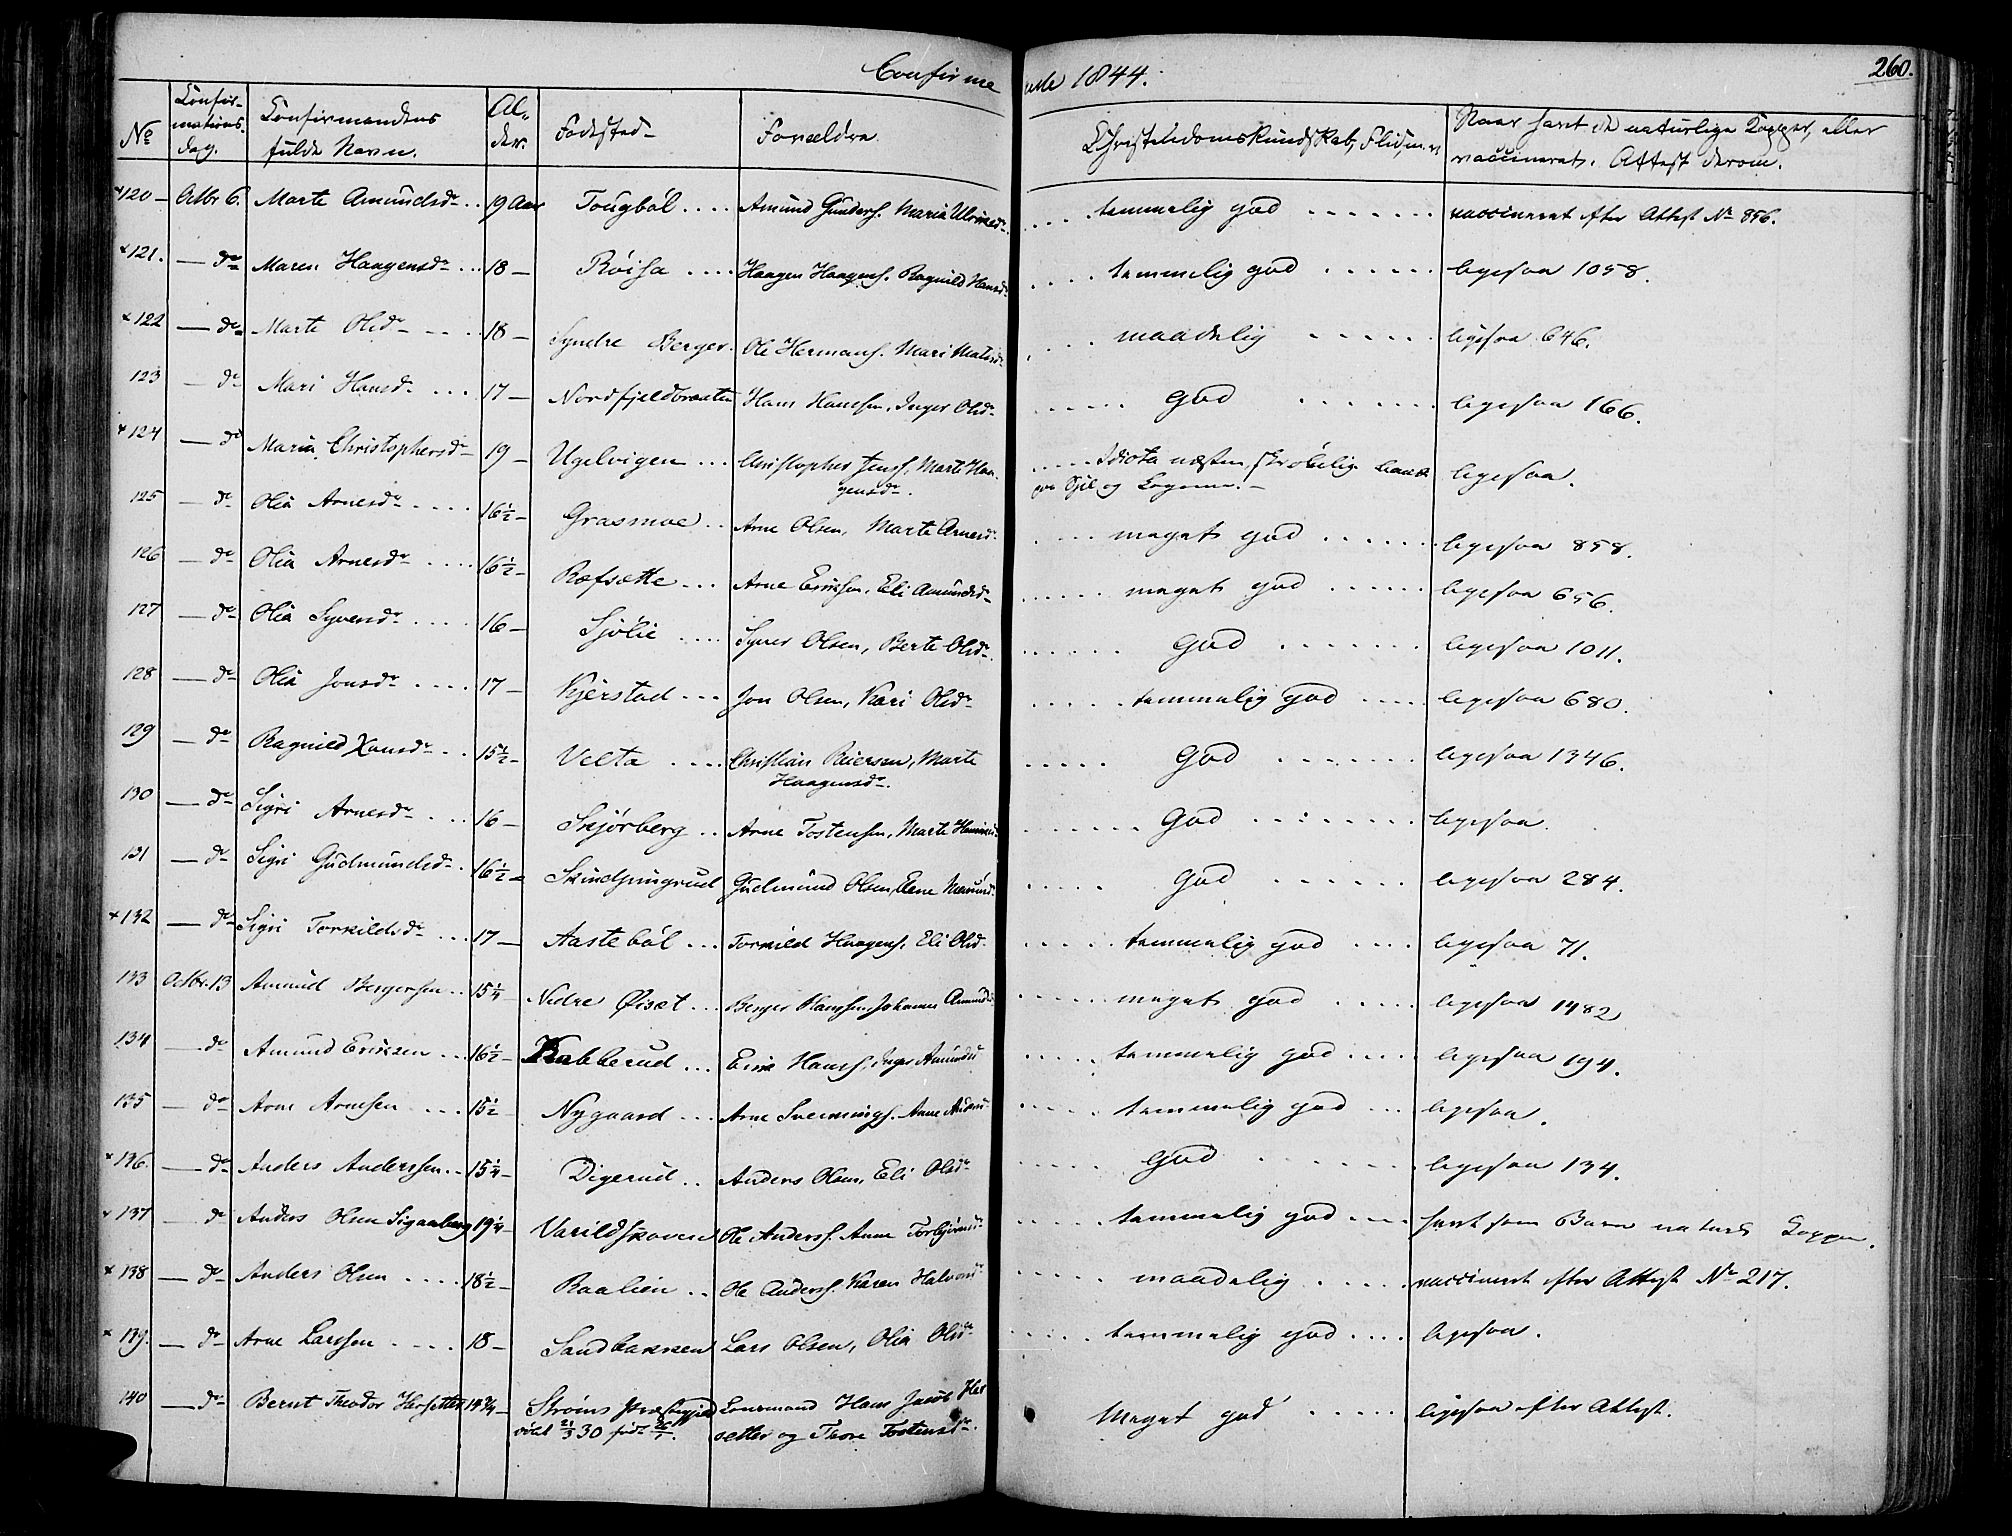 Confirmerede 1844. 260.
No Confirmations-dag. Confirmandens fulde Navn. Alder. Fødested Forældre. Christendomskundskab, Flid, m. v. Naar havt de naturlige Kopper, eller vaccineret. Attest derom.
×120 - Octbr 6. Marte Amundsdr 19 Aar Tougböl Amund Gunders. Maria temmelig god vaccineret efter Attest No 896.
×121. - do Maren Haagensdr 18 - Röisa Haagen Haagens. Ragnild Hansdr temmelig god ligesaa 1058.
×122 - do Marte Olsdr 18 - Syndre Berger Ole Hermans. Mari maadelig ligesaa 646.
123 - do Mari Hansd. 17 - Nordfjeldbraaten Hans Hansen, Inger Olsdr god ligesaa 166.
×124 - do Maria Christophersdr 19 - Ugelvigen Christopher Jenss. Marte Haagensdr. Idiota næsten, skröbelig baade paa Sjel og Legeme. ligesaa.
125 - do Olia Arnesdr 16½ - Grasmoe Arne Olsen, Marte Arnesdr meget god ligesaa 858.
126 - do Olia Arnesdr 16½ - Ræfsætte Arne Eriksen, Eli Amundsdr meget god ligesaa 656.
127 - do Olia Syversdr 16 - Sjölie Syver Olsen, Berte Olsdr. god ligesaa 1011.
128 - do Olia Jonsdr 17 - Kjerstad Jon Olsen, Kari Olsdr temmelig god ligesaa 680.
129 - do Ragnild Xansdr 15½ - Velta Christian Reiersen, Marte Haagensdr. god ligesaa 1346.
130 - do Sigri Arnesdr 16 - Skjørberg Arne Tostensen, Marte god ligesaa.
131 - do Sigri Gudmundsdr 16½ - Gudmund Olsen, god ligesaa 284.
×132 - do Sigri Torkildsdr 17 - Aasteböl Torkild Haagens. Eli Olsd. temmelig god ligesaa 71.
133 Octbr. 13 Amund Bergersen 15¼ - Nedre Øiset Berger Hanssen, Johanne meget god ligesaa 1482
134 - do Amund Eriksen 16½ - Kabberud Erik Hanss. Inger temmelig god ligesaa 194.
135 - do Arne Arnesen 15½ - Nygaard Arne Svennings. Anne temmelig god ligesaa.
×136. - do Anders Anderssen 15¼ - Digerud Anders Olsen, Eli Olsdr god ligesaa 134.
×137 - do Anders Olsen Sigaaberg 19¼ - Varildskoven Ole Anderss. Anne temmelig god havt som Barn naturl. Kopper.
×138 - do Anders Olsen 18½ - Raalien Ole Anderss. Karen maadelig vaccineret efter Attest No 217.
×139. - do Arne Larssen 18 - Sandbakken Lars Olsen, Olia Olsdr temmelig god ligesaa.
140 - do Bernt Theodor Hersetter 14¾ - Ströms Præstegjeld döbt 21/3 30 född 26/1. Lensmand Hans Jacob Hersetter og Thore Tostensdr. Meget god ligesaa efter Attest.